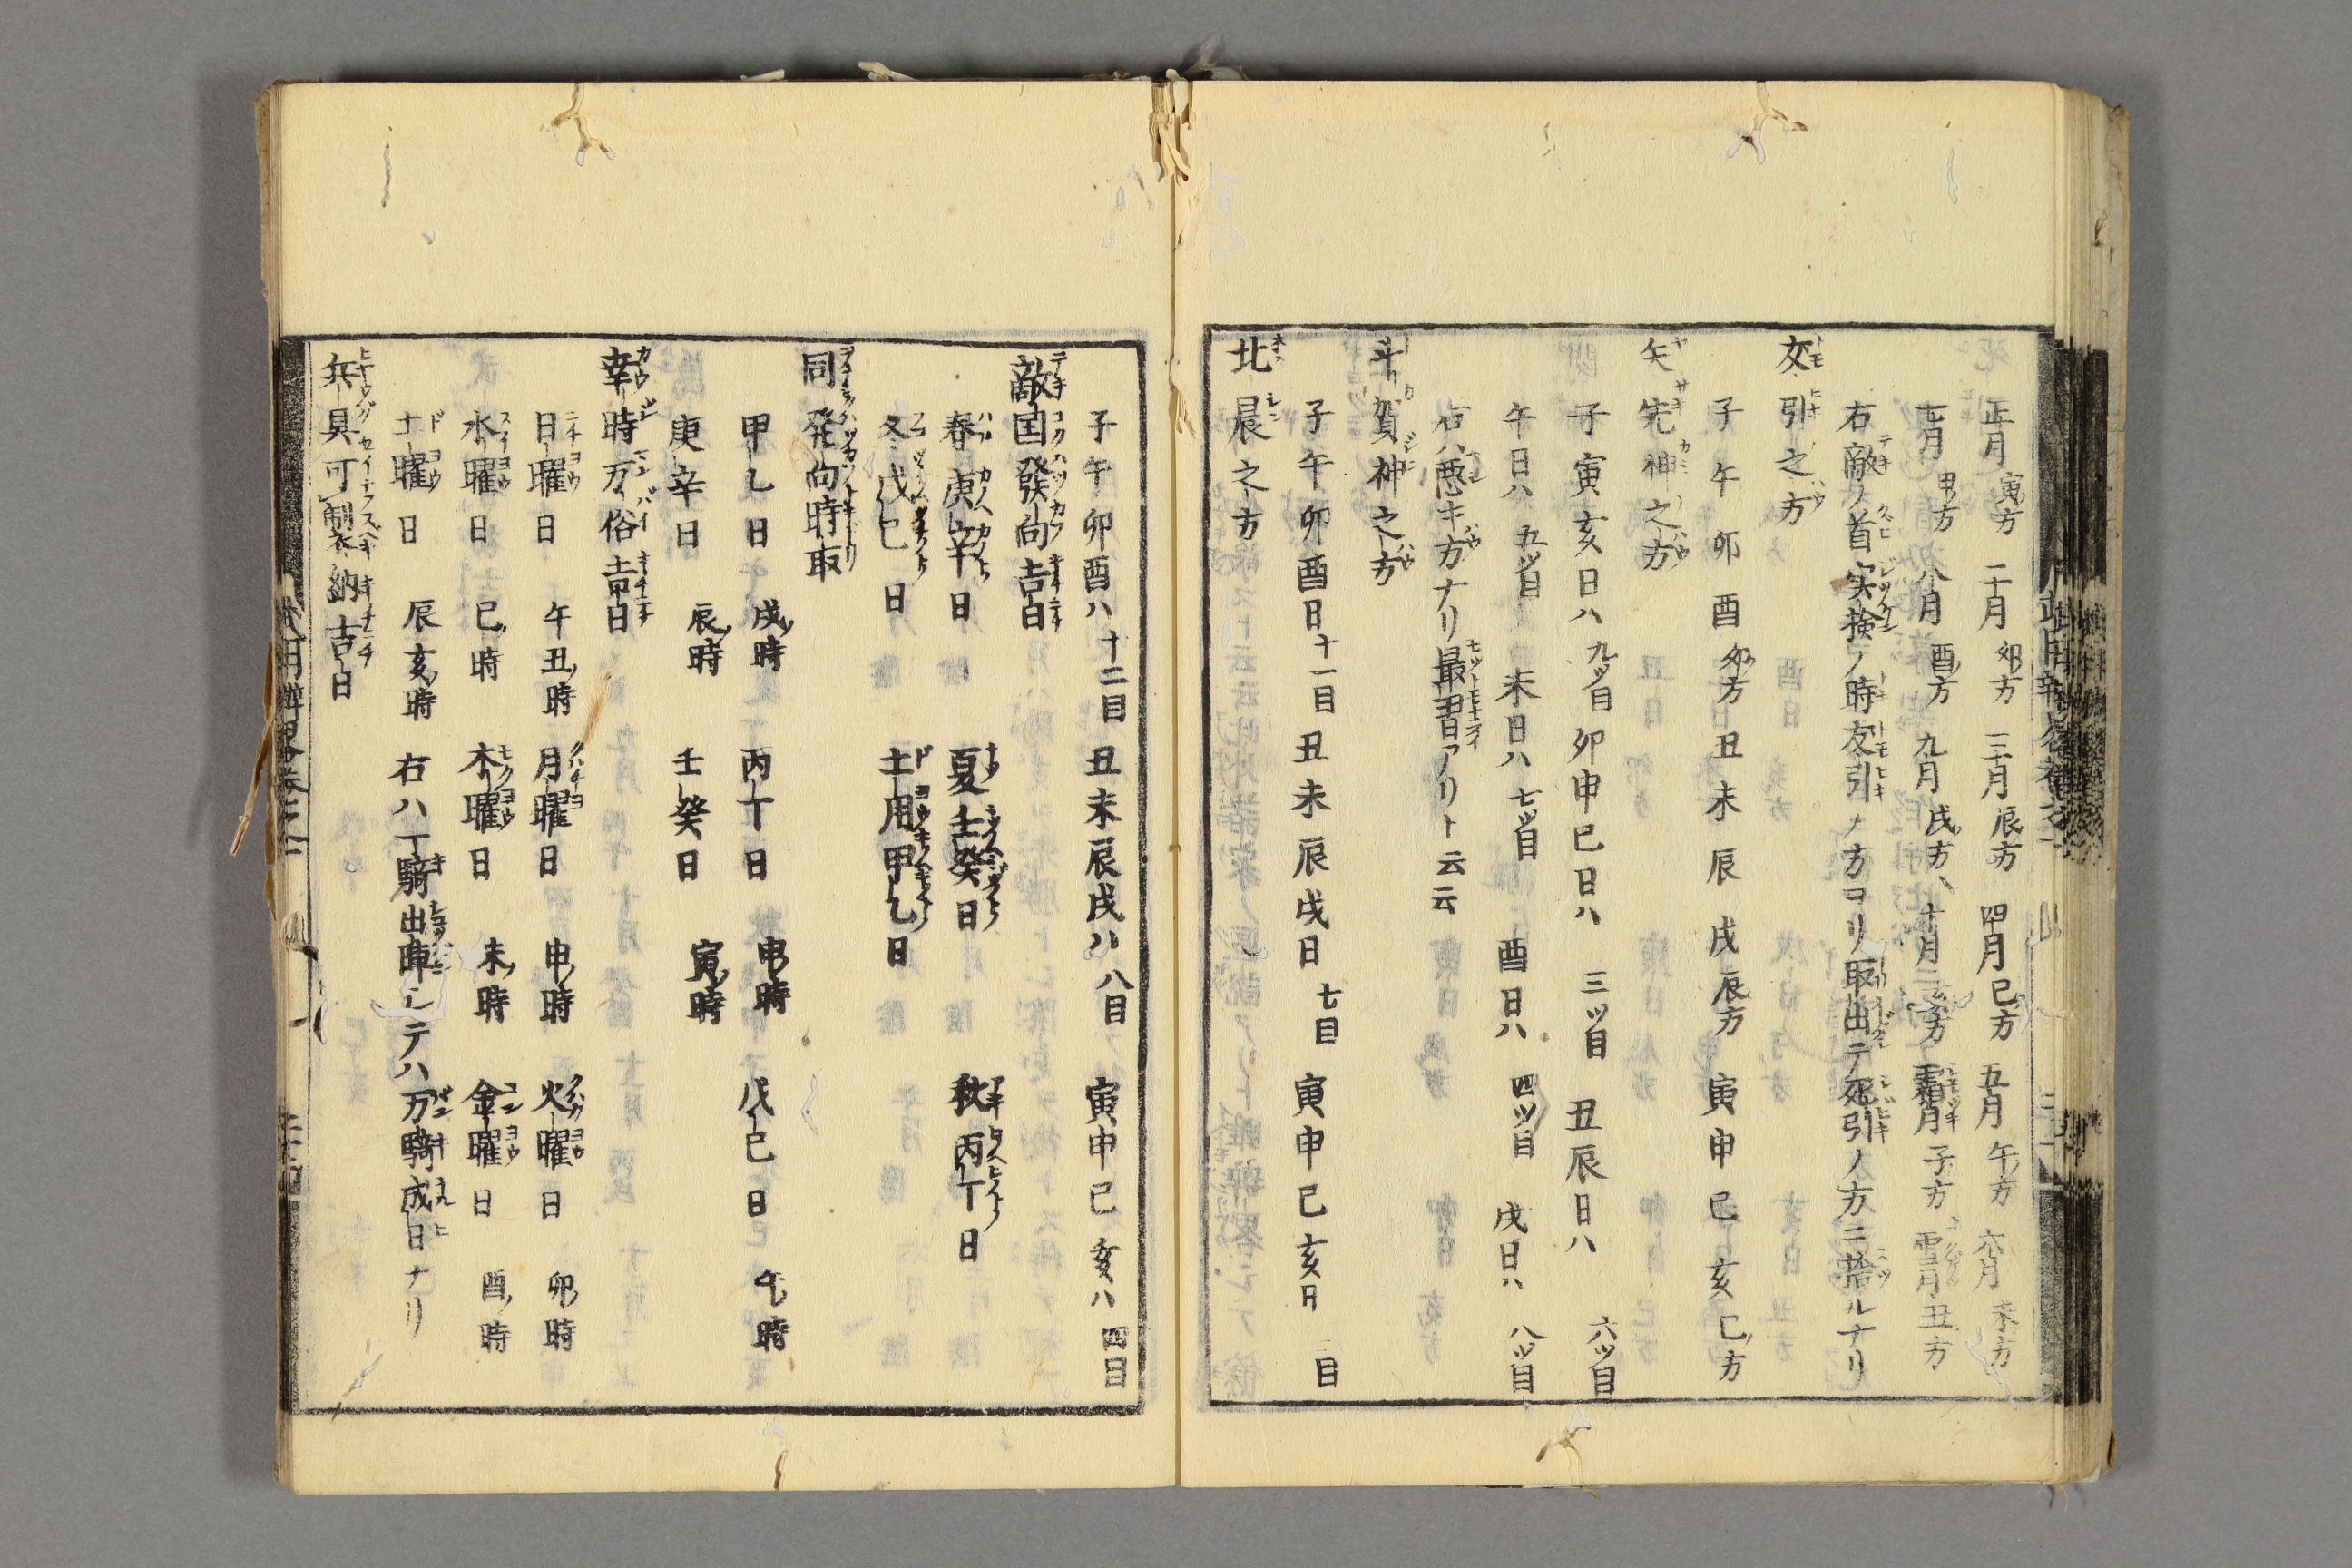 正月寅方 二月卯方 三月辰方 四月巳方 五月午方 六月未方
七月申方 八月酉方 九月戌方 十月亥方 霜月子方 雪月丑方
右敵ノ首実検ノ時友引ノ方ヨリ取出テ死引ノ方ニ捨ルナリ
友引之方
子午卯酉卯方 丑未辰戌辰方 寅申巳亥巳方
矢先神之方
子寅亥日ハ九ツ目 卯申巳日ハ三ツ目 丑辰日ハ六ツ目
午日ハ五ツ目 未日ハ七ツ目 酉日ハ四ツ目 戌日ハ八ツ目
右ハ悪キ方ナリ最習アリト云云
斗賀神之方
子午卯酉日十一目 丑未辰戌日七目 寅申巳亥日 目
北晨之方
子午卯酉ハ十二目 丑未辰戌ハ八目 寅申巳亥ハ四目
敵国發向吉日
春庚辛日 夏壬癸日 秋丙丁日
冬戊己日 土用甲乙日
同発向時取
甲乙日戌時 丙丁日申時 戊己日午時
庚辛日辰時 壬癸日寅時
幸時万倍吉日
日曜日午丑時 月曜日申時 火曜日卯時
水曜日巳時 木曜日未時 金曜日酉時
土曜日辰亥時 右ハ一騎出陣シテハ万騎成日ナリ
兵具可制衣納吉日